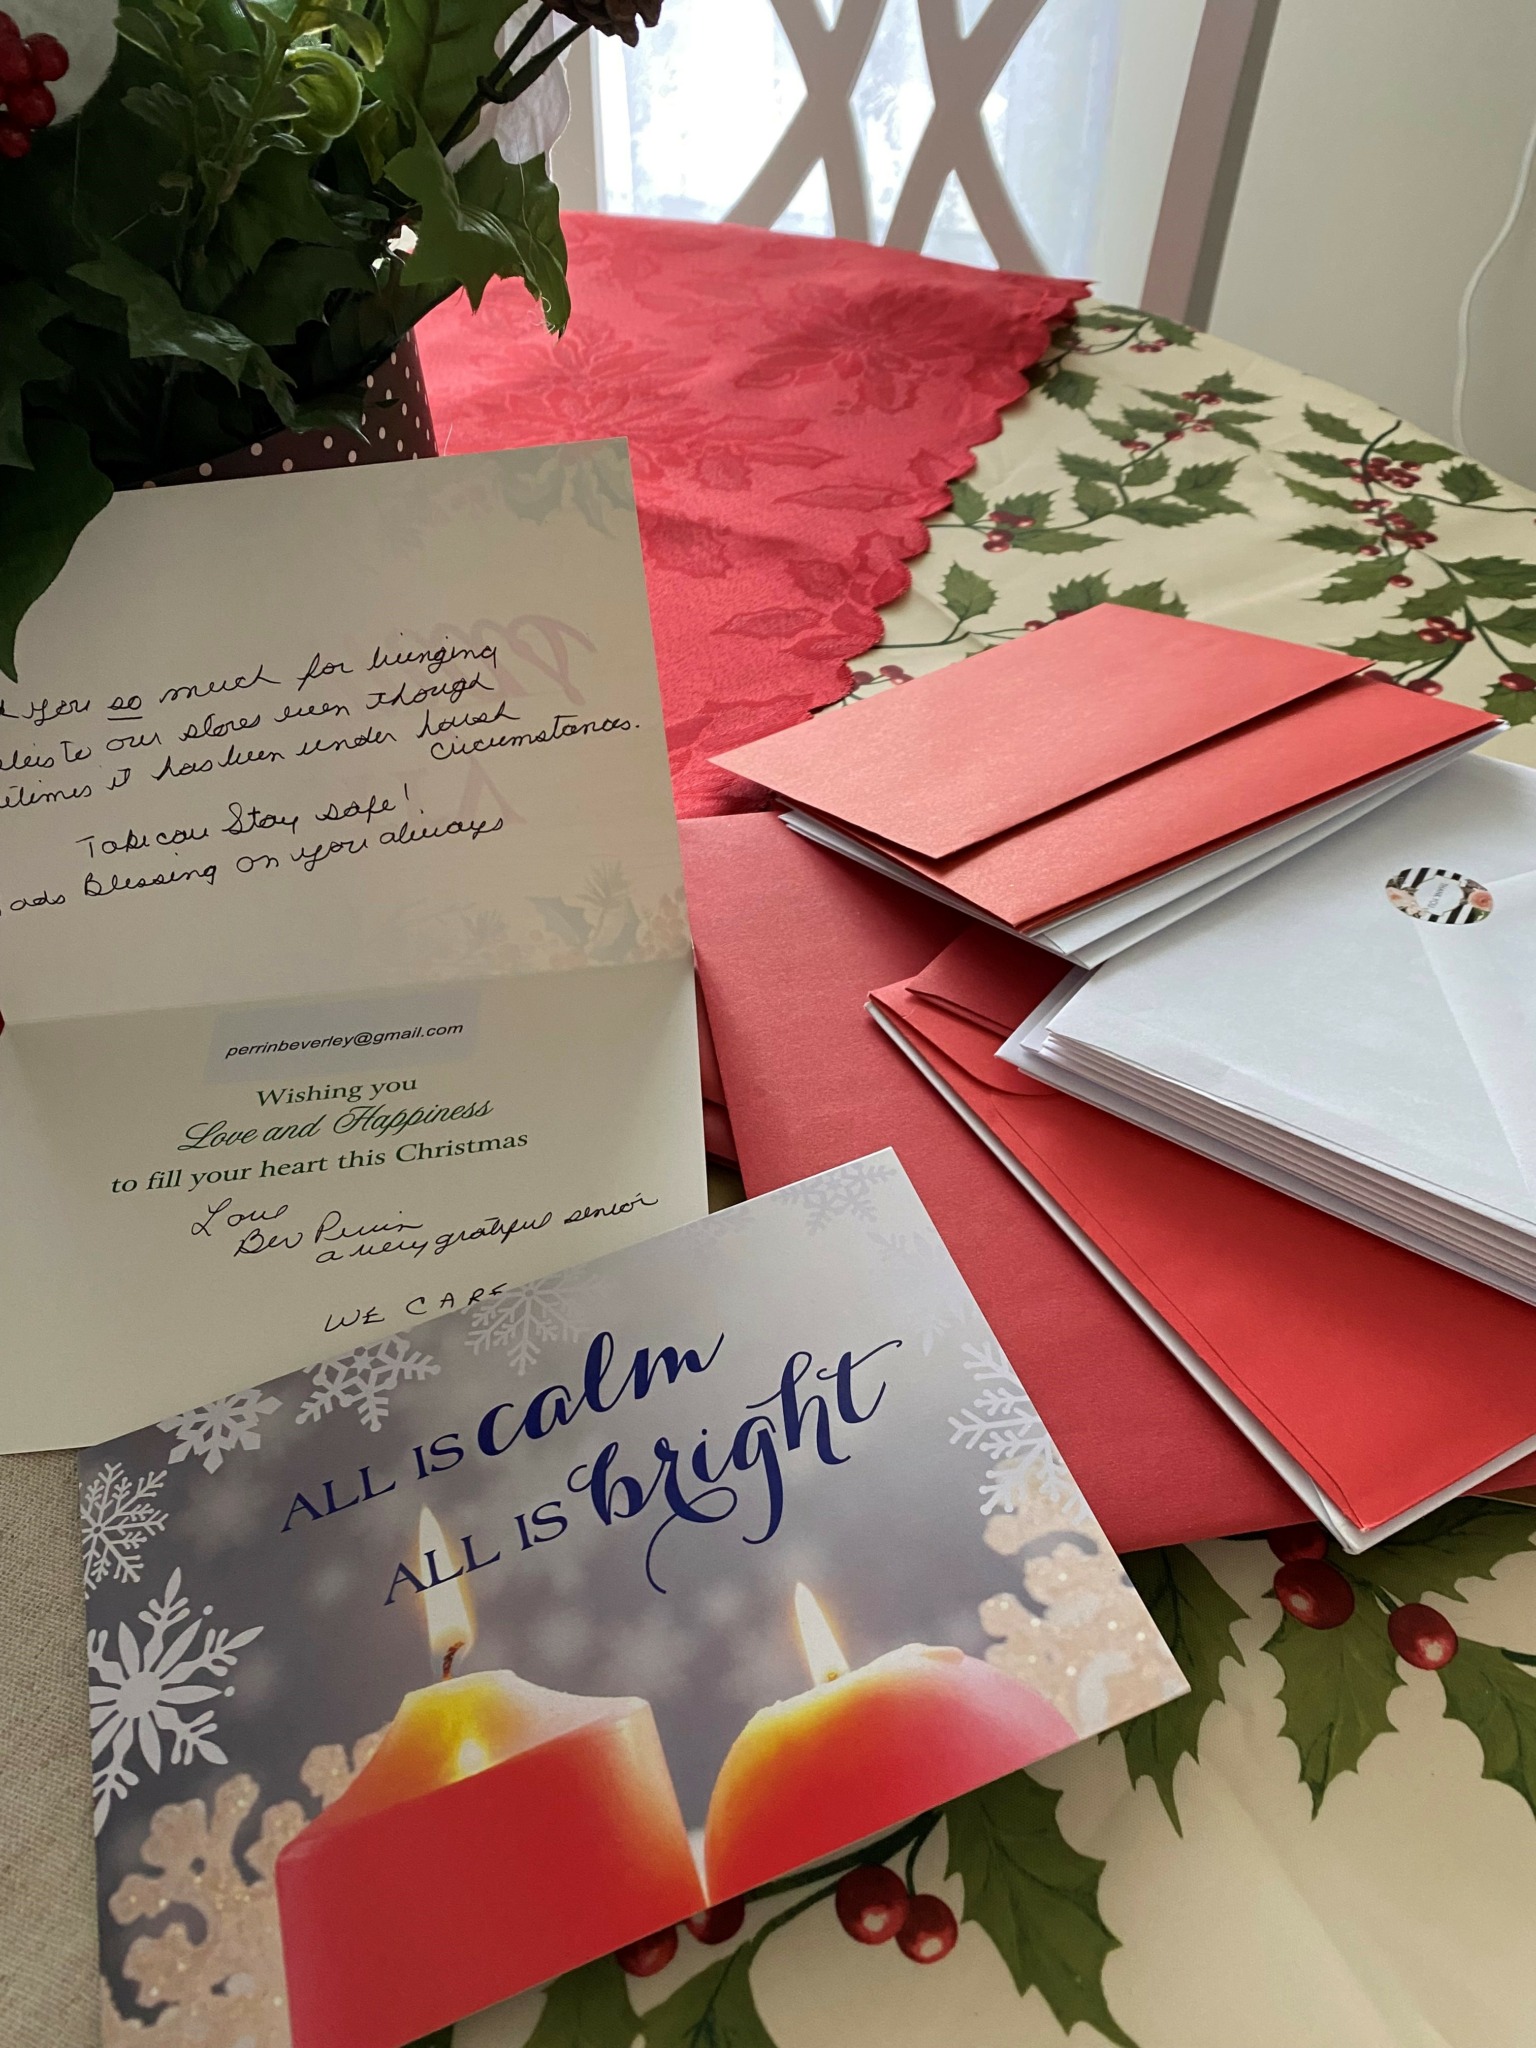 you so much for bringing
to our stores even though
it has been under harsh
circumstances.
Take care Stay safe!
Blessing on you always
perrinbeverley@gmail.com
Wishing you
Love and Happiness
to fill your heart this Christmas
Love
Bev Perrin
a very grateful senior
WE CARE
ALL IS calm
ALL IS bright